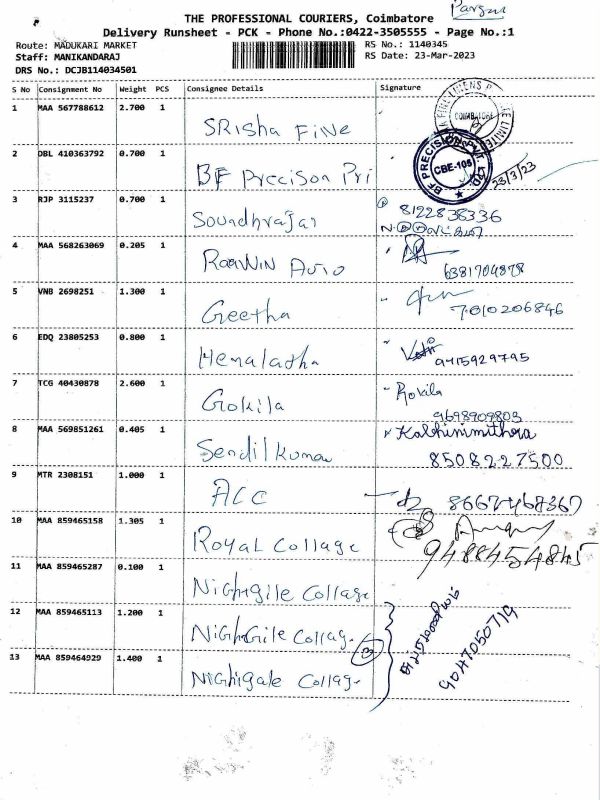 THE PROFESSIONAL COURIERS, Coimbatore
Delivery Runsheet - PCK - Phone No.:0422-3505555 - Page No.:1
Route: MADUKARI MARKET
RS No.: 1140345
Staff: MANIKANDARAJ
RS Date: 23-Mar-2023
DRS No.: DCJB114034501
S No Consignment No Weight PCS Consignee Details Signature
1 MAA 567788612 2.700 1 SRisha Fine
COIMBATORE
2 DBL 410363792 0.700 1 BF Precison Pri
BF PRECISION PVT. LTD. CBE-105 23/3/23
3 RJP 3115237 0.700 1 Soundhrajar 8122838336
4 MAA 568263069 0.205 1 RaaWIN Auto 6381704878
5 VNB 2698251 1.300 1 Geetha 7010206846
6 EDQ 23805253 0.800 1 Hemalatha 9415929795
7 TCG 40430878 2.600 1 Gokila Rokila
9698909803
8 MAA 569851261 0.405 1 Sendilkumar Kabhinimithra
8508227500
9 MTR 2308151 1.000 1 ACC 8667468367
10 MAA 859465158 1.305 1 Royal Collage
9488454845
11 MAA 859465287 0.100 1 NiGhgile Collage
12 MAA 859465113 1.200 1 NiGhGile Collag-
3
13 MAA 859464929 1.400 1 NiGhigale Collag-
9047050719